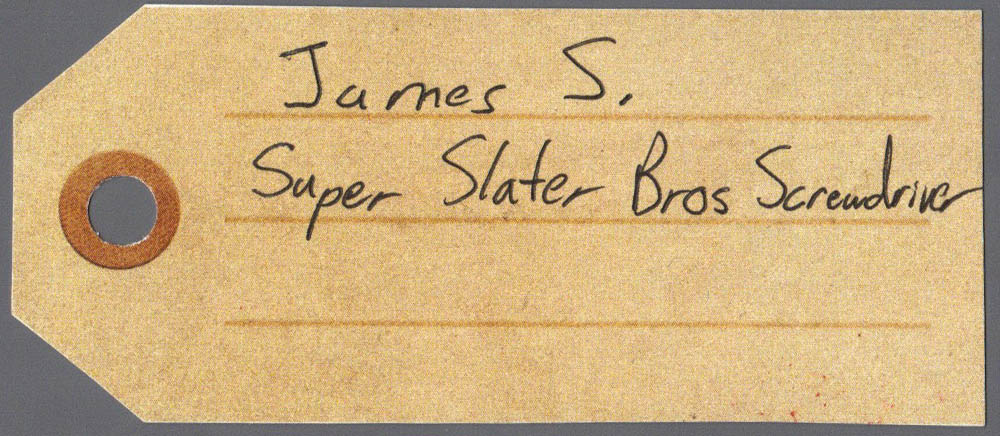 James S.
Super Slater Bros Screwdriver